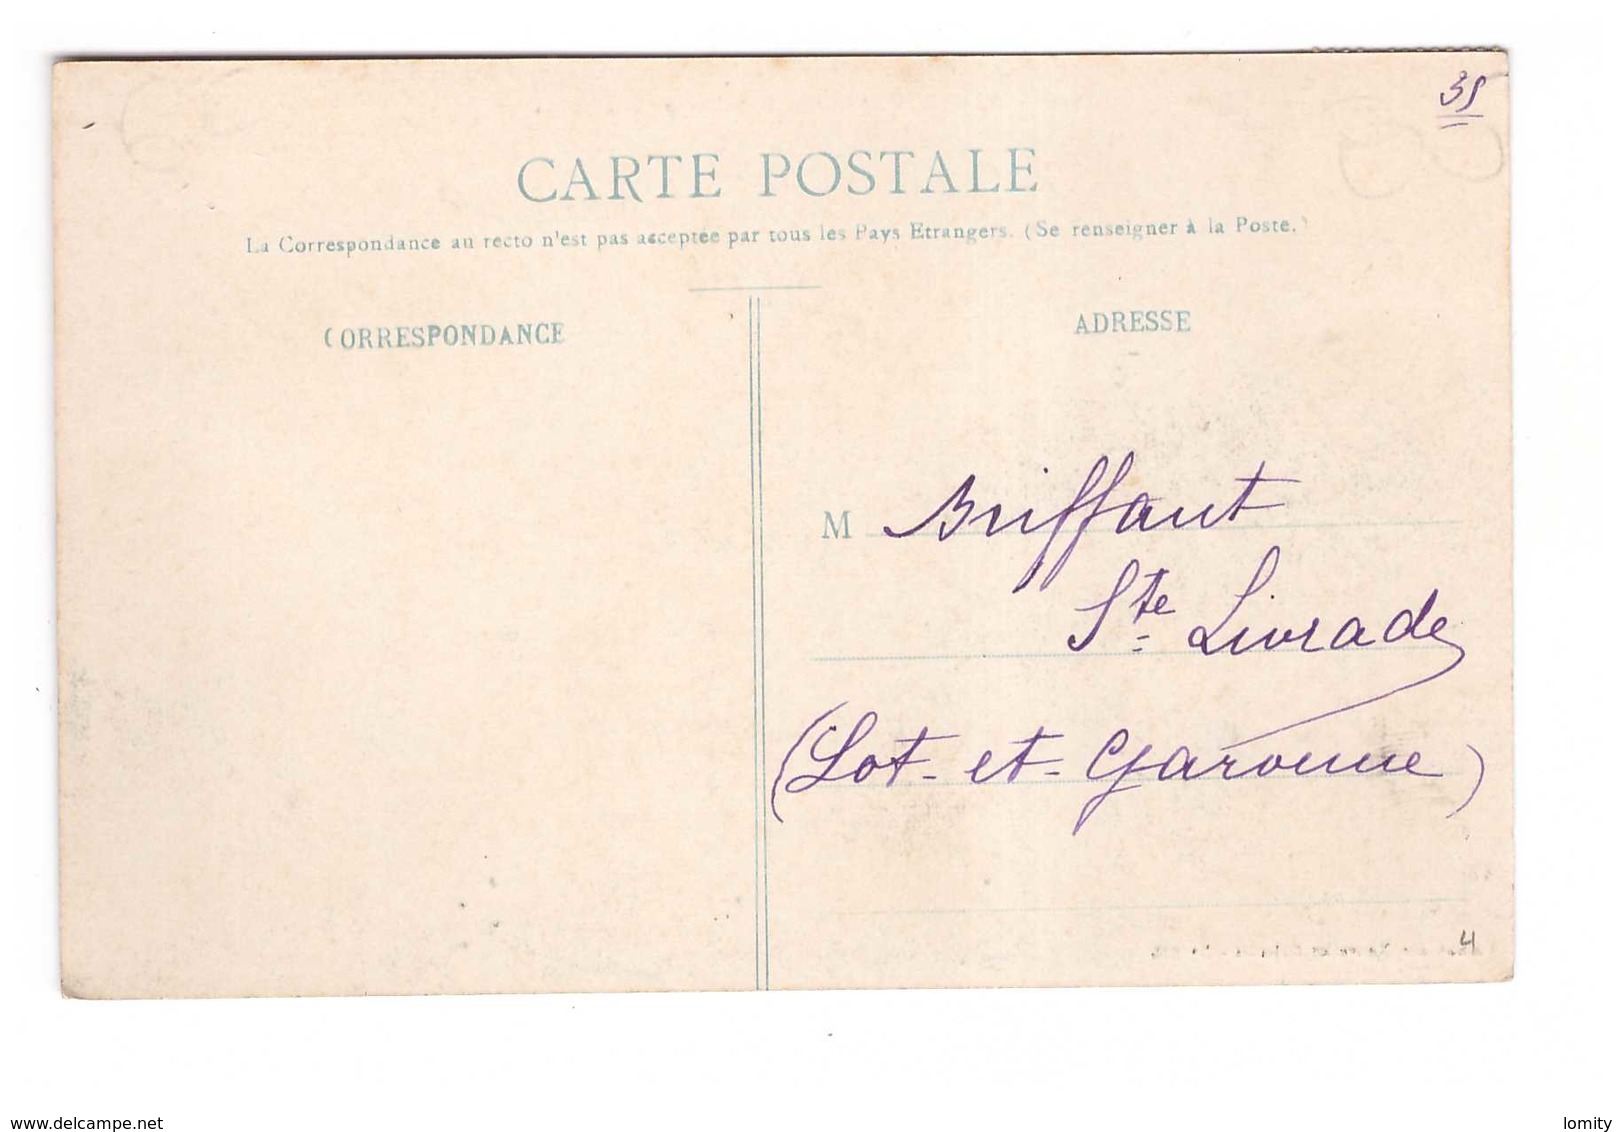 35
CARTE POSTALE
La Correspondance au recto n'est pas acceptée par tous les Pays Etrangers. (Se renseigner à la Poste.)
CORRESPONDANCE
ADRESSE
M Briffaut
Ste Livrade
(Lot-et-Garonne)
4
www.delcampe.net
lomity